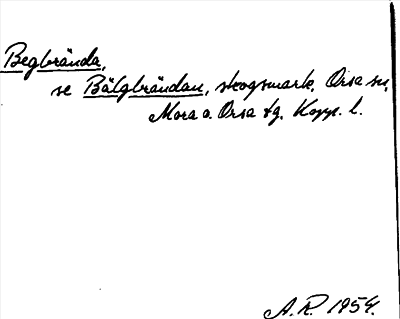 Begbrända,
se Bälgbrändan, skogsmark, Orsa sn,
Mora o. Orsa tg. Kopp. l.
A.R. 1954.